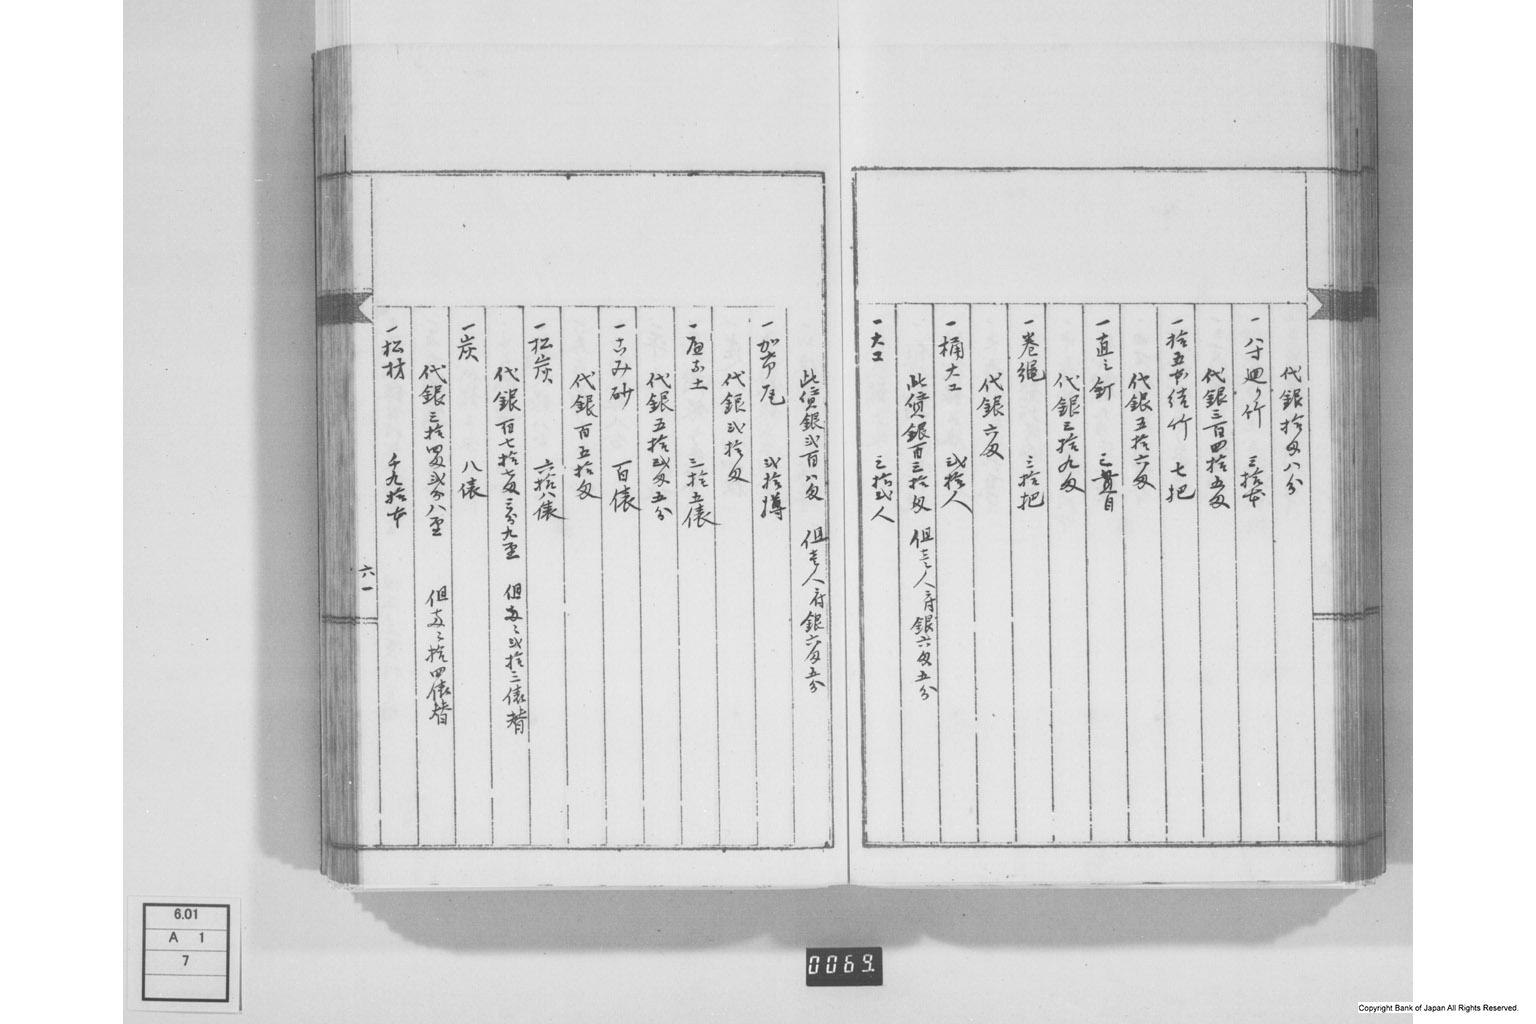 代銀拾匁八分
一八寸廻り竹 三拾本
代銀三百四拾五匁
一拾五本結竹 七把
代銀五拾六匁
一直シ釘 三貫目
代銀三拾九匁
一巻縄 三拾把
代銀六匁
一桶大工 弐拾人
此賃銀百三拾匁 但壱人ニ付銀六匁五分
一大工 三拾弐人
此賃銀弐百八匁 但壱人ニ付銀六匁五分
一加市尾 弐拾
代銀弐拾匁
土 三拾五俵
代銀五拾弐匁五分
一こみ砂 百俵
代銀百五拾匁
一松炭 六拾八俵
代銀百七拾七匁三分九厘 但 弐拾三俵替
一炭 八俵
代銀三拾四匁弐分八厘 但 拾四俵替
一松材 千九拾本
六一
6.01
A 1
7
0069.
Copyright Bank of Japan All Rights Reserved.